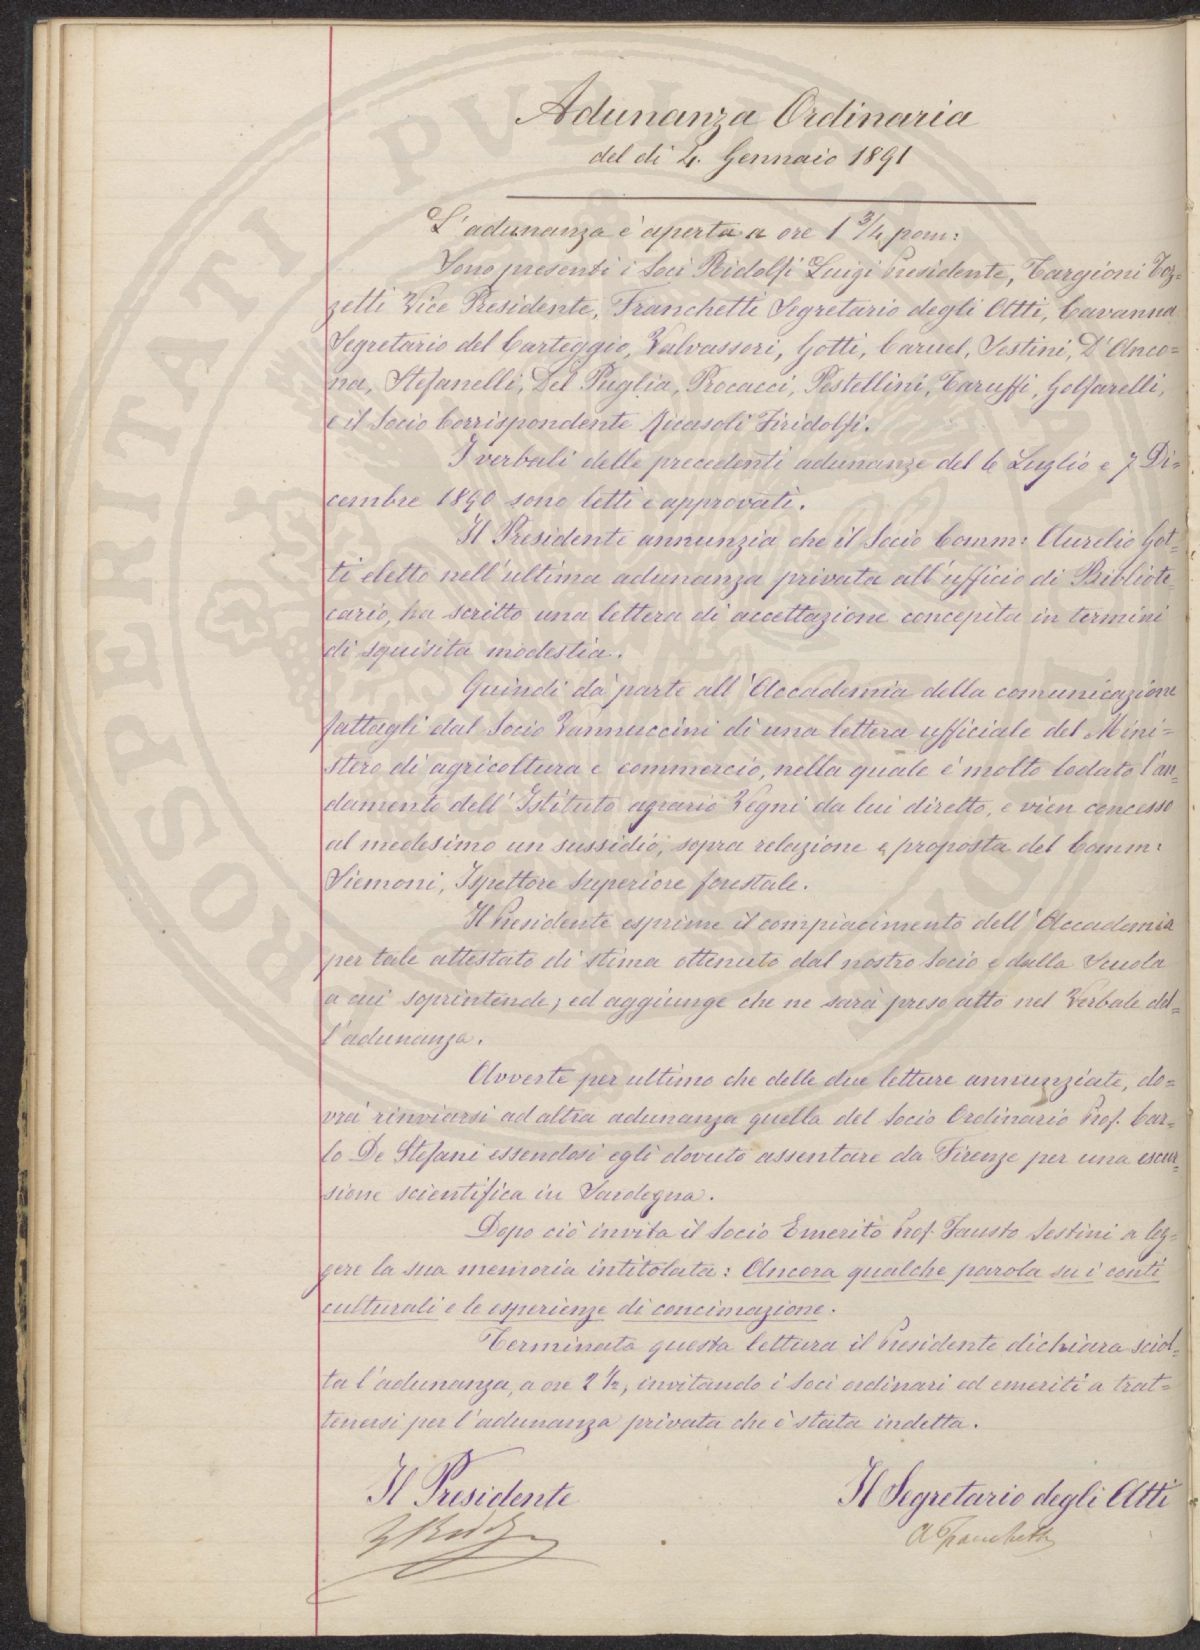 Adunanza Ordinaria
del dì 4. Gennaio 1891
L'adunanza è aperta a ore 1 3/4 pom:
Sono presenti i Soci Ridolfi Luigi Presidente, Targioni Toz=
zetti Vice Presidente, Franchetti Segretario degli Atti, Cavanna
Segretario del Carteggio, Valvassori, Gotti, Caruel, Sestini, D'Anco=
na, Stefanelli, Del Puglia, Procacci, Pestellini, Taruffi, Golfarelli,
e il Socio Corrispondente Ricasoli Firidolfi.
I verbali delle precedenti adunanze del 6 Luglio e 7 Di=
cembre 1890 sono letti e approvati.
Il Presidente annunzia che il Socio Comm: Aurelio Got=
ti eletto nell'ultima adunanza privata all'ufficio di Bibliote=
cario, ha scritto una lettera di accettazione concepita in termini
di squisita modestia.
Quindi dà parte all'Accademia della comunicazione
fattagli dal Socio Vannuccini di una lettera ufficiale del Mini=
stero di agricoltura e commercio, nella quale è molto lodato l'an=
damento dell'Istituto agrario Vegni da lui diretto, e vien concesso
al medesimo un sussidio, sopra relazione e proposta del Comm:
Siemoni, Ispettore Superiore forestale.
Il Presidente esprime il compiacimento dell'Accademia
per tale attestato di stima ottenuto dal nostro Socio e dalla Scuola
a cui soprintende; ed aggiunge che ne sarà preso atto nel Verbale del=
l'adunanza.
Avverte per ultimo che delle due letture annunziate, do=
vrà rinviarsi ad altra adunanza quella del Socio Ordinario Prof. Car=
lo De Stefani essendosi egli dovuto assentare da Firenze per una escur=
sione scientifica in Sardegna.
Dopo ciò invita il Socio Emerito Prof. Fausto Sestini a leg=
gere la sua memoria intitolata: Ancora qualche parola su i conti
culturali e le esperienze di concimazione.
Terminata questa lettura il Presidente dichiara sciol=
ta l'adunanza, a ore 2 1/2, invitando i Soci ordinari ed emeriti a trat=
tenersi per l'adunanza privata che è stata indetta.
Il Presidente
Il Segretario degli Atti
L Ridolfi
A Franchetti
PROSPERITATI PUBLICAE